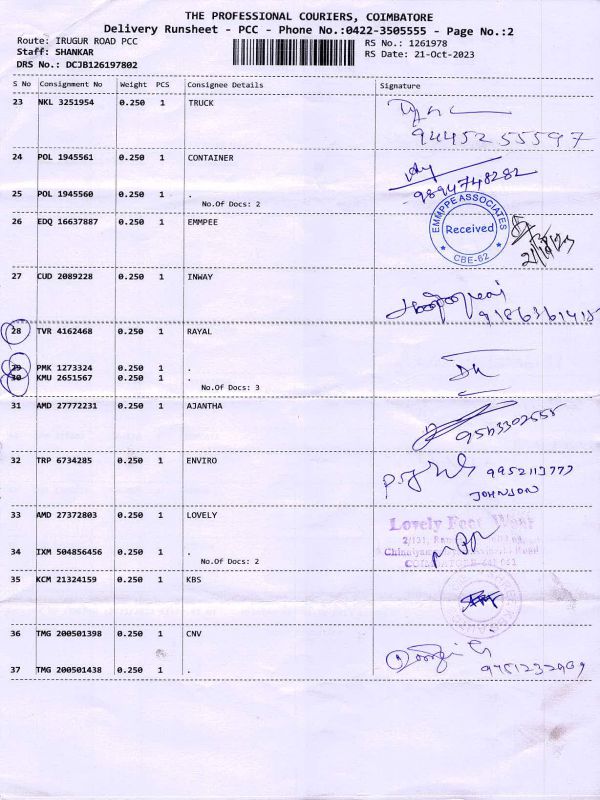 THE PROFESSIONAL COURIERS, COIMBATORE
Delivery Runsheet - PCC - Phone No.:0422-3505555 - Page No.:2
Route: IRUGUR ROAD PCC
RS No.: 1261978
Staff: SHANKAR
RS Date: 21-Oct-2023
DRS No.: DCJB126197802
S No Consignment No Weight PCS Consignee Details Signature
23 NKL 3251954 0.250 1 TRUCK
94452 55597
24 POL 1945561 0.250 1 CONTAINER
9894748282
25 POL 1945560 0.250 1 .
No.Of Docs: 2
EMMPPE ASSOCIATES
Received
CBE-62
26 EDQ 16637887 0.250 1 EMMPEE
27 CUD 2089228 0.250 1 INWAY
28 TVR 4162468 0.250 1 RAYAL
29 PMK 1273324 0.250 1 .
30 KMU 2651567 0.250 1
No.Of Docs: 3
31 AMD 27772231 0.250 1 AJANTHA
32 TRP 6734285 0.250 1 ENVIRO
JOHNSON
33 AMD 27372803 0.250 1 LOVELY
Lovely Foot Wear
34 IXM 504856456 0.250 1 .
No.Of Docs: 2
35 KCM 21324159 0.250 1 KBS
36 TMG 200501398 0.250 1 CNV
37 TMG 200501438 0.250 1 .